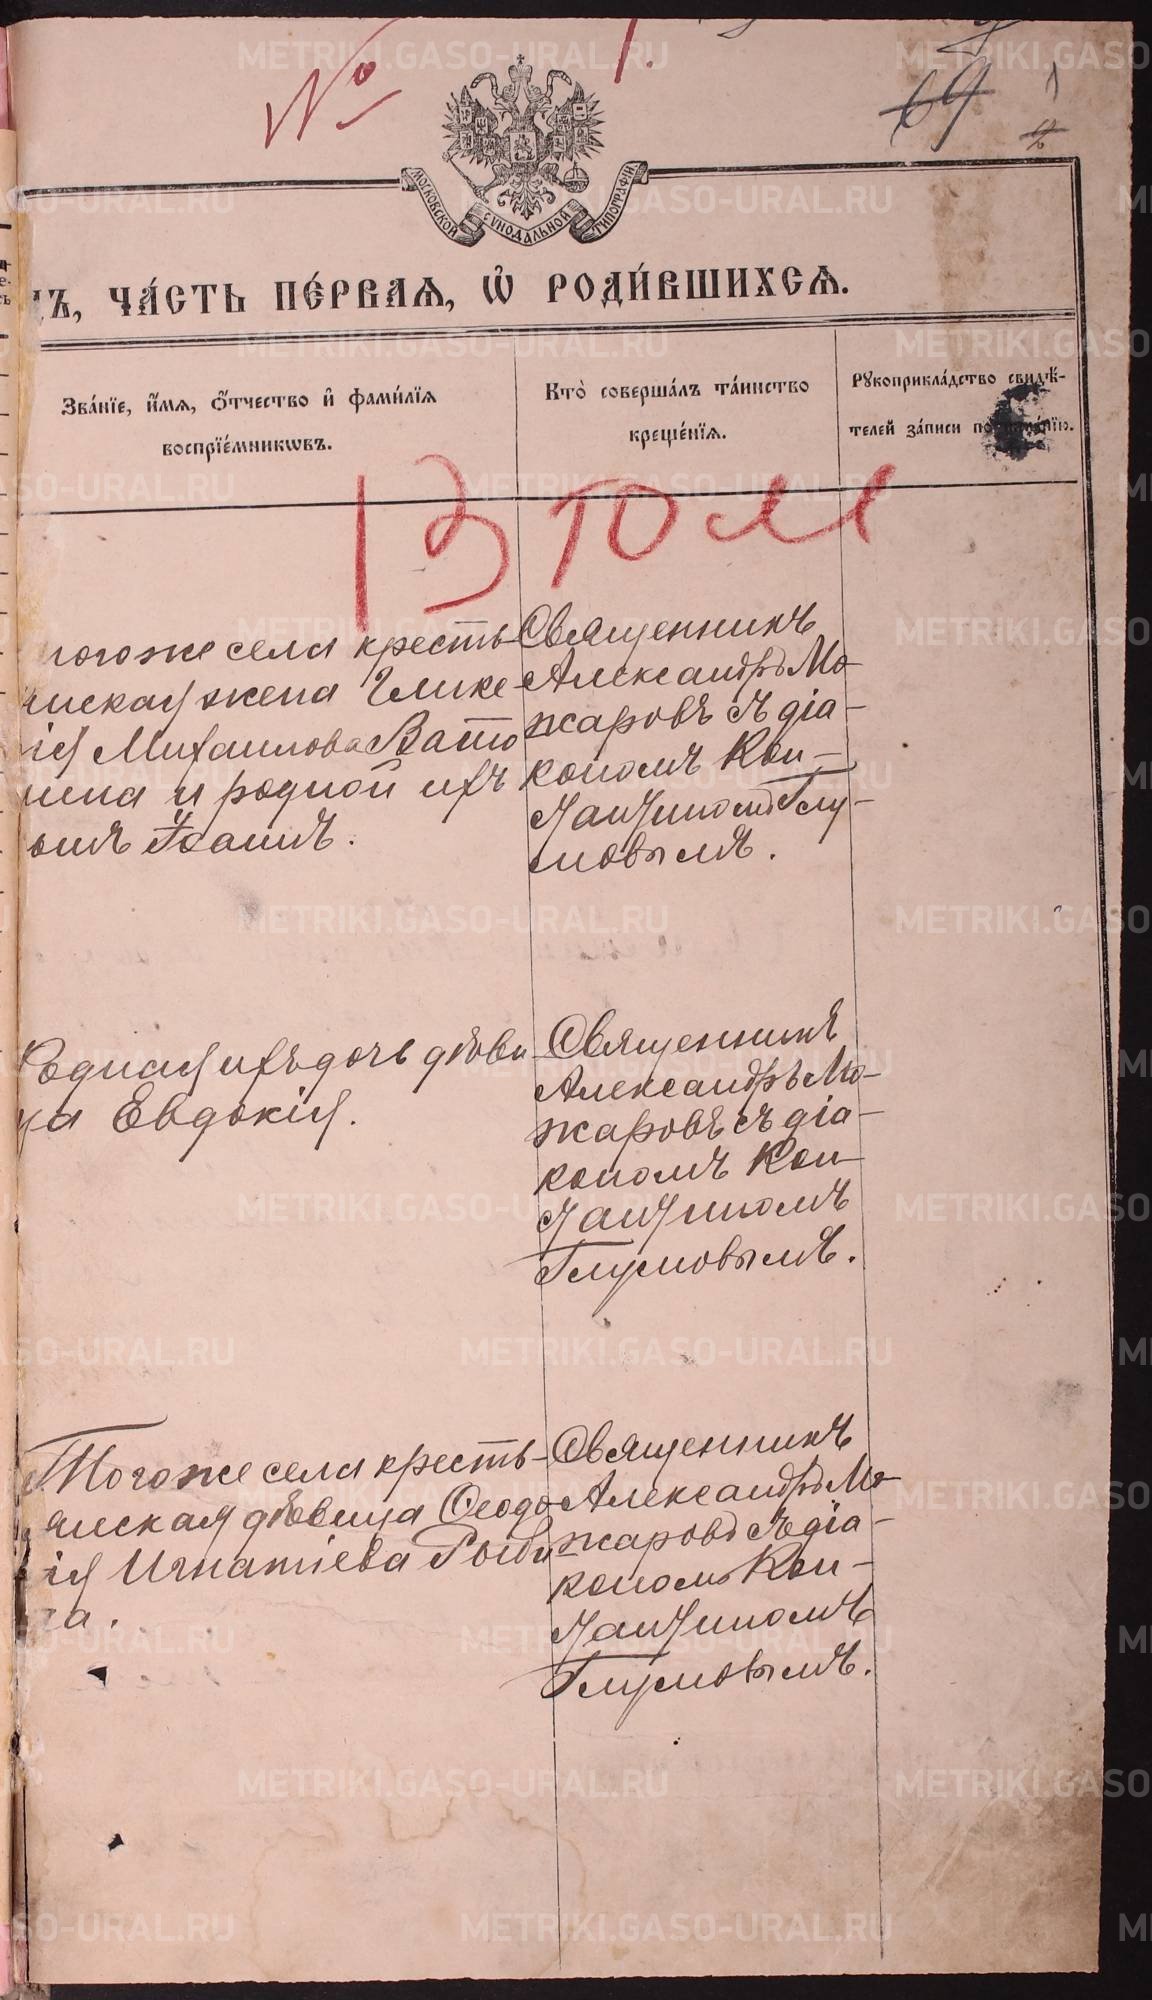 № 1.
69
МОСКОВСКОЙ СѴНОДАЛЬНОЙ ТИПОГРАФІИ
ДЪ, ЧА́СТЬ ПЕ́РВАѦ, Ѡ҆ РОДИ́ВШИХСѦ.
Зва́нїе, и҆́мѧ, ѻ҆́тчество и҆ фами́лїѧ
воспрїе́мникѡвъ.
Кто̀ соверша́лъ та́инство
креще́нїѧ.
Рꙋкоприкла́дство свидѣ́-
телей за́писи по жела́нїю.
того же села кресть-
янская жена Глике-
ія Михаилова Вато
ина и родной ихъ
сынъ Іоаннъ.
Священникъ
Александръ Мо-
жаровъ съ діа-
кономъ Кон-
стантиномъ Глу-
мовымъ.
Родная ихъ дочь дѣви-
ца Евдокія.
Священникъ
Александръ Мо-
жаровъ съ діа-
кономъ Кон-
стантиномъ
Глумовымъ.
Того же села кресть-
янская дѣвица Ѳеодо
ія Игнатіева
Священникъ
Александръ Мо-
жаровъ съ діа-
кономъ Кон-
стантиномъ
Глумовымъ.
METRIKI.GASO-URAL.RU